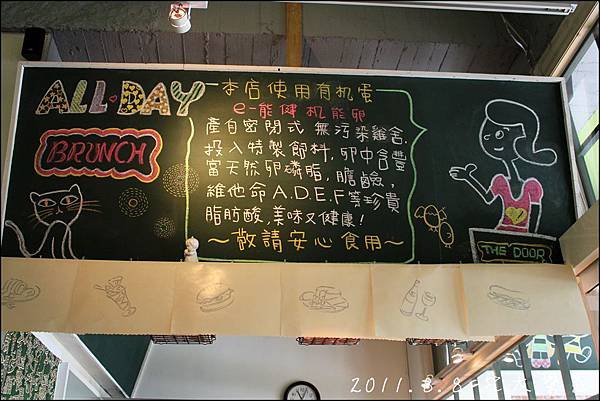 ALL·DAY
BRUNCH
本店使用有机蛋
e-能健机能卵
產自密閉式 無污染雞舍,
投入特製飼料,卵中含豐
富天然卵磷脂,膽鹼,
維他命A.D.E.F等珍貴
脂肪酸,美味又健康!
~敬請安心食用~
THE DOOR
2011.8.8